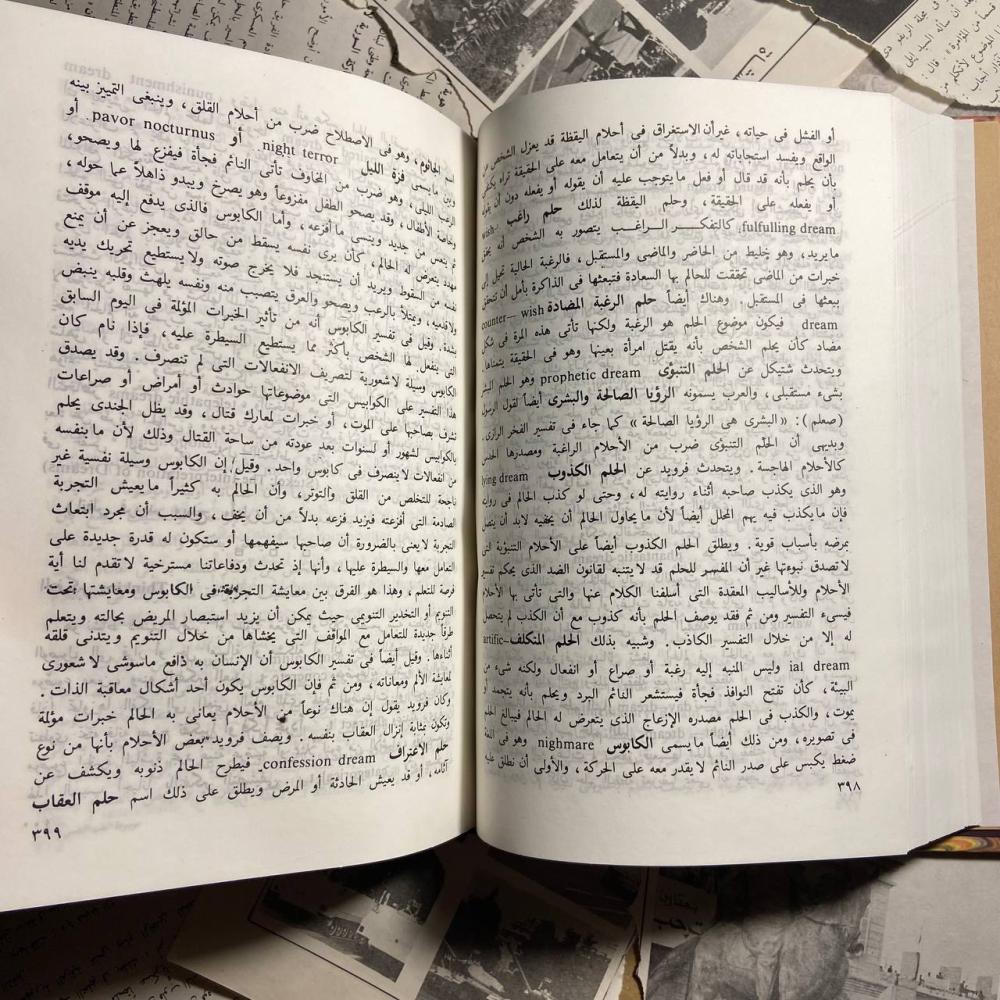 أو الفشل فى حياته، غيرأن الاستغراق فى أحلام اليقظة قد يعزل الشخص عن
الواقع ويفسد استجاباته له، وبدلاً من أن يتعامل معه على الحقيقة تراه يكتفى
بأن يحلم بأنه قد قال أو فعل مايتوجب عليه أن يقوله أو يفعله دون أن يقوله
أو يفعله على الحقيقة، وحلم اليقظة لذلك حلم راغب wish-
fulfulling dream، كالتفكير الراغب يتصور به الشخص أنه يحقق
مايريد، وهو خليط من الحاضر والماضى والمستقبل، فالرغبة الحالية تحيل إلى
خبرات من الماضى تحققت للحالم بها السعادة فتبعثها فى الذاكرة بأمل أن تتحقق
ببعثها فى المستقبل. وهناك أيضاً حلم الرغبة المضادة counter— wish
dream فيكون موضوع الحلم هو الرغبة ولكنها تأتى هذه المرة فى شكل
مضاد كأن يحلم الشخص بأنه يقتل امرأة بعينها وهو فى الحقيقة يتمناها.
ويتحدث شتيكل عن الحلم التنبؤى prophetic dream وهو الحلم
بشىء مستقبلى، والعرب يسمونه الرؤيا الصالحة والبشرى أيضاً لقول الرسول
(صعلم): «البشرى هى الرؤيا الصالحة» كما جاء فى تفسير الفخر الرازى.
وبديهى أن الحلم التنبؤى ضرب من الأحلام الراغبة ومصدرها
كالأحلام الهاجسة. ويتحدث فرويد عن الحلم الكذوب lying dream
وهو الذى يكذب صاحبه أثناء روايته له، وحتى لو كذب الحالم فى روايته
فإن مايكذب فيه يهم المحلل أيضاً لأن مايحاول الحالم أن يخفيه لابد أن يتصل
بمرضه بأسباب قوية. ويطلق الحلم الكذوب أيضاً على الأحلام التنبؤية التى
لاتصدق نبوءتها غير أن المفسر للحلم قد لايتنبه لقانون الضد الذى يحكم تفسير
الأحلام وللأساليب المعقدة التى أسلفنا الكلام عنها والتى تأتى بها الأحلام
فيسىء التفسير ومن ثم فقد يوصف الحلم بأنه كذوب مع أن الكذب لم يتحصل
له إلا من خلال التفسير الكاذب. وشبيه بذلك الحلم المتكلف artific-
ial dream وليس المنبه إليه رغبة أو صراع أو انفعال ولكنه شىء من
البيئة، كأن تفتح النوافذ فجأة فيستشعر النائم البرد ويحلم بأنه يتجمد أو
يموت، والكذب فى الحلم مصدره الإزعاج الذى يتعرض له الحالم فيبالغ الحلم
فى تصويره، ومن ذلك أيضاً مايسمى الكابوس nighmare وهو فى اللغة
ضغط يكبس على صدر النائم لايقدر معه على الحركة، والأولى أن نطلق عليه
٣٩٨
اسم الجاثوم، وهو فى الاصطلاح ضرب من أحلام القلق، وينبغى التمييز بينه
وبين مايسمى فزة الليل night terror أو pavor nocturnus أو
الرعب الليلى، وهو ضرب من المخاوف تأتى النائم فجأة فيفزع لها ويصحو،
وبخاصة الأطفال، وقد يصحو الطفل مفزوعاً وهو يصرخ ويبدو ذاهلاً عما حوله،
ثم ينعس من جديد وينسى ما أفزعه، وأما الكابوس فالذى يدفع إليه موقف
مهدد يتعرض له الحالم، كأن يرى نفسه يسقط من حالق ويعجز عن أن يمنع
نفسه من السقوط ويريد أن يستنجد فلا يخرج صوته ولايستطيع تحريك يديه
ولاقدميه، ويمتلأ بالرعب ويصحو والعرق يتصبب منه ونفسه يلهث وقلبه ينبض
بشدة. وقيل فى تفسير الكابوس أنه من تأثير الخبرات المؤلمة فى اليوم السابق
التى ينفعل لها الشخص بأكثر مما يستطيع السيطرة عليه، فإذا نام كان
الكابوس وسيلة لاشعورية لتصريف الانفعالات التى لم تنصرف. وقد يصدق
هذا التفسير على الكوابيس التى موضوعاتها حوادث أو أمراض أو صراعات
تشرف بصاحبها على الموت، أو خبرات لمعارك قتال، وقد يظل الجندى يحلم
بالكوابيس لشهور أو لسنوات بعد عودته من ساحة القتال وذلك لأن مابنفسه
من انفعالات لاينصرف فى كابوس واحد. وقيل إن الكابوس وسيلة نفسية غير
ناجحة للتخلص من القلق والتوتر، وأن الحالم به كثيراً مايعيش التجربة
الصادمة التى أفزعته فيزيد فزعه بدلاً من أن يخف، والسبب أن مجرد ابتعاث
التجربة لايعنى بالضرورة أن صاحبها سيفهمها أو ستكون له قدرة جديدة على
التعامل معها والسيطرة عليها، وأنها إذ تحدث ودفاعاتنا مسترخية لاتقدم لنا أية
فرصة للتعلم، وهذا هو الفرق بين معايشة التجربة فى الكابوس ومعايشتها تحت
التنويم أو التخدير التنويمى حيث يمكن أن يزيد استبصار المريض بحالته ويتعلم
طرقاً جديدة للتعامل مع المواقف التى يخشاها من خلال التنويم ويتدنى قلقه
أثناءها. وقيل أيضاً فى تفسير الكابوس أن الإنسان به دافع ماسوشى لاشعورى
لمعايشة الألم ومعاناته، ومن ثم فإن الكابوس يكون أحد أشكال معاقبة الذات.
وكان فرويد يقول إن هناك نوعاً من الأحلام يعانى به الحالم خبرات مؤلمة
وتكون بمثابة إنزال العقاب بنفسه. ويصف فرويد بعض الأحلام بأنها من نوع
حلم الاعتراف confession dream، فيطرح الحالم ذنوبه ويكشف عن
آثامه، أو قد يعيش الحادثة أو المرض ويطلق على ذلك اسم حلم العقاب
٣٩٩